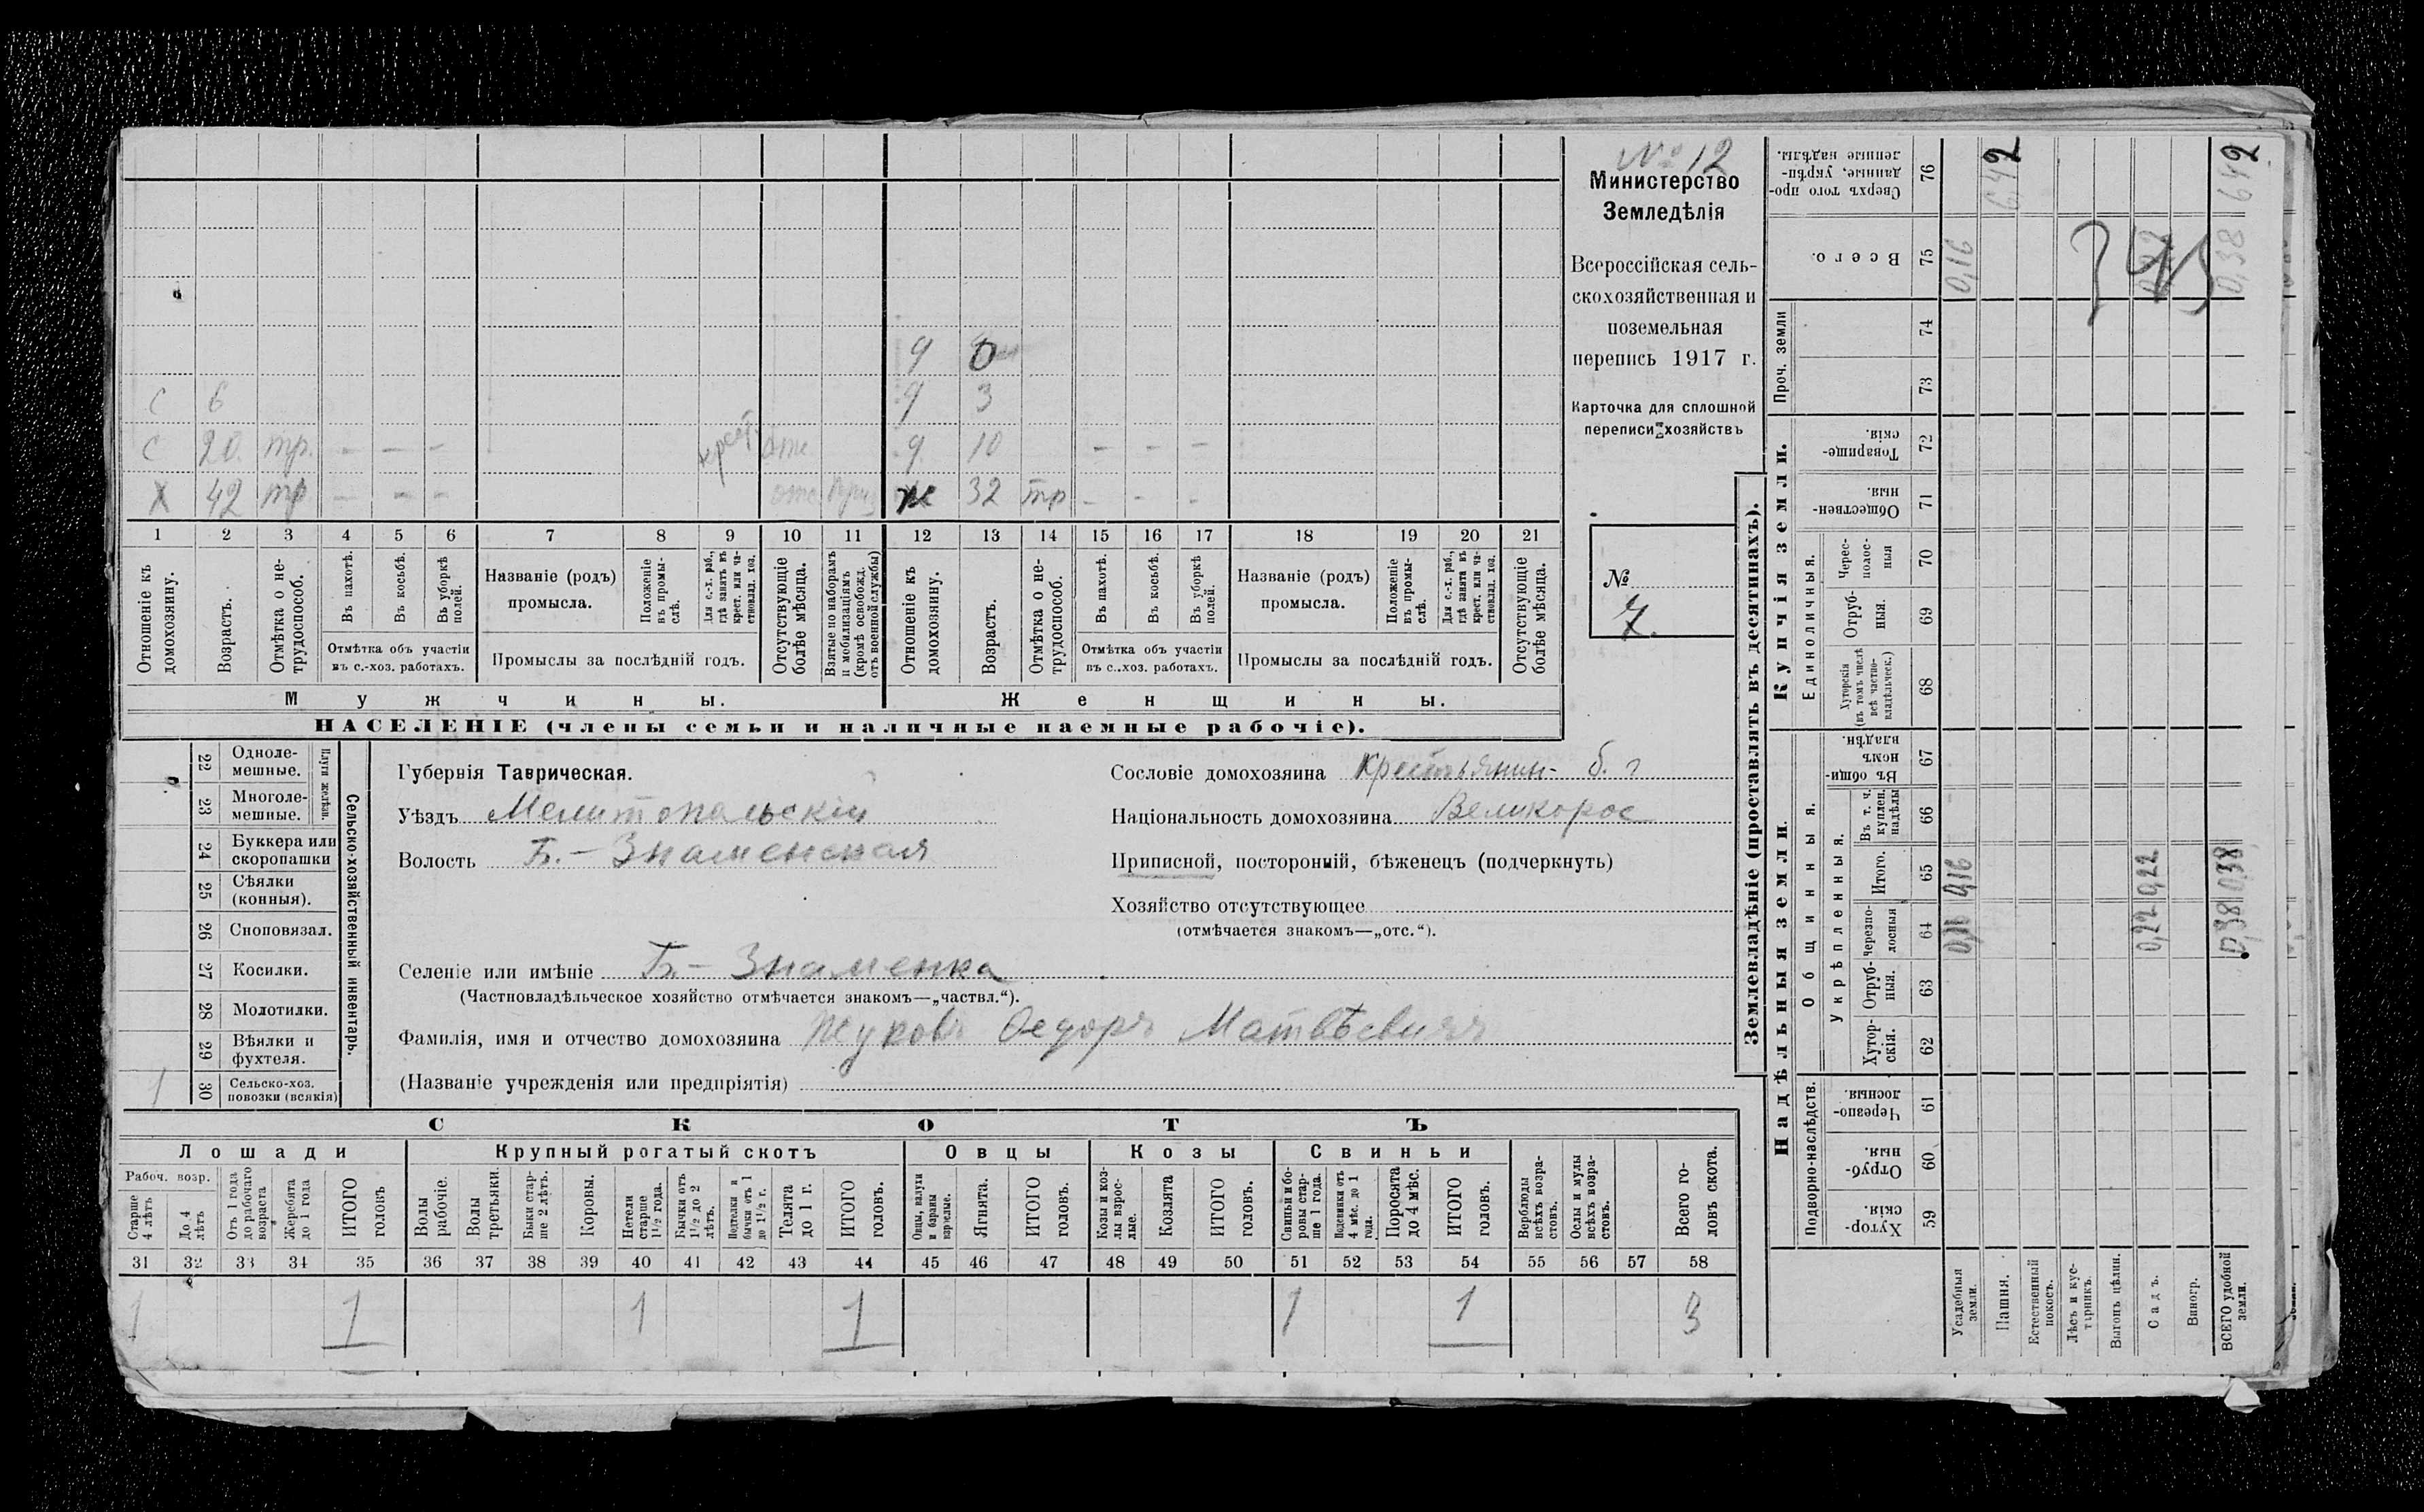 № 12
Министерство
Земледѣлія
Всероссійская сель-
скохозяйственная и
поземельная
перепись 1917 г.
Карточка для сплошной
переписи хозяйствъ
№
7.
д 0
с 6 д 3
с 20 тр. — — — крест отс д 10 — — —
х 42 тр — — — отс ж 32 тр — — —
1 2 3 4 5 6 7 8 9 10 11 12 13 14 15 16 17 18 19 20 21
Отношеніе къ домохозяину.
Возрастъ.
Отмѣтка о не-трудоспособ.
Въ пахотѣ.
Въ косьбѣ.
Въ уборкѣ полей.
Отмѣтка объ участіи
въ с.-хоз. работахъ.
Названіе (родъ)
промысла.
Положеніе въ промы-слѣ.
Для с.-х. раб., гдѣ занятъ въ крест. или ча-стновлад. хоз.
Промыслы за послѣдній годъ.
Отсутствующіе болѣе мѣсяца.
Взятые по наборамъ и мобилизаціямъ (кромѣ освобожд. отъ военной службы)
Отношеніе къ домохозяину.
Возрастъ.
Отмѣтка о не-трудоспособ.
Въ пахотѣ.
Въ косьбѣ.
Въ уборкѣ полей.
Отмѣтка объ участіи
въ с..хоз. работахъ.
Названіе (родъ)
промысла.
Положеніе въ промы-слѣ.
Для с.-х. раб., гдѣ занята въ крест. или ча-стновлад. хоз.
Промыслы за послѣдній годъ.
Отсутствующіе болѣе мѣсяца.
Мужчины. Женщины.
НАСЕЛЕНІЕ (члены семьи и наличные наемные рабочіе).
22 Одноле-мешные.
23 Многоле-мешные.
Плуги желѣзн.
24 Буккера или скоропашки
25 Сѣялки (конныя).
26 Сноповязал.
27 Косилки.
28 Молотилки.
29 Вѣялки и фухтеля.
1 30 Сельско-хоз. повозки (всякія)
Сельско-хозяйственный инвентарь.
Губернія Таврическая.
Уѣздъ Мелитопольскій
Волость Б.-Знаменская
Сословіе домохозяина Крестьянин- б. г
Національность домохозяина Великорос
Приписной, посторонній, бѣженецъ (подчеркнуть)
Хозяйство отсутствующее
(отмѣчается знакомъ—„отс.“).
Селеніе или имѣніе Б.- Знаменка
(Частновладѣльческое хозяйство отмѣчается знакомъ—„частвл.“).
Фамилія, имя и отчество домохозяина Жуковъ Ѳедоръ Матвѣевичъ
(Названіе учрежденія или предпріятія)
СКОТЪ
Лошади Крупный рогатый скотъ Овцы Козы Свиньи
Рабоч. возр.
Старше 4 лѣтъ
До 4 лѣтъ
Отъ 1 года до рабочаго возраста
Жеребята до 1 года
ИТОГО головъ
Волы рабочіе.
Волы третьяки.
Быки стар-ше 2 лѣтъ.
Коровы.
Нетели старше 1 1/2 года.
Бычки отъ 1 1/2 до 2 лѣтъ.
Подтелки и бычки отъ 1 до 1 1/2 г.
Телята до 1 г.
ИТОГО головъ.
Овцы, валухи и бараны взрослые.
Ягнята.
ИТОГО головъ.
Козы и коз-лы взрос-лые.
Козлята
ИТОГО головъ.
Свиньи и бо-ровы стар-ше 1 года.
Подсвинки отъ 4 мѣс. до 1 года.
Поросята до 4 мѣс.
ИТОГО головъ.
Верблюды всѣхъ возра-стовъ.
Ослы и мулы всѣхъ возра-стовъ.
Всего го-ловъ скота.
31 32 33 34 35 36 37 38 39 40 41 42 43 44 45 46 47 48 49 50 51 52 53 54 55 56 57 58
1 1 1 1 1 1 3
Землевладѣніе (проставлять въ десятинахъ).
Надѣльныя земли. Купчія земли. Проч. земли
Подворно-наслѣдств. Общинныя. Единоличныя.
Укрѣпленныя.
Хутор-скія. 59
Отруб-ныя. 60
Черезпо-лосныя. 61
Хутор-скія. 62
Отруб-ныя. 63
Черезпо-лосныя 64
Итого. 65
Въ т. ч. куплен. надѣлы 66
Въ общи-номъ владѣн. 67
Хуторскія (въ томъ числѣ всѣ частно-владѣльческ.) 68
Отруб-ныя. 69
Черес-полос-ныя 70
Обществен-ныя. 71
Товарище-скія. 72
73
74
Всего. 75
Сверхъ того про-данные, укрѣп-ленные надѣлы. 76
Усадебныя земли. 0,16 0,16
Пашня. 6,42
Естественный покосъ.
Лѣсъ и кус-тарникъ.
Выгонъ цѣлин.
Садъ. 0,22 0,22
Виногр.
ВСЕГО удобной земли. 0,38 0,38 0,38 642